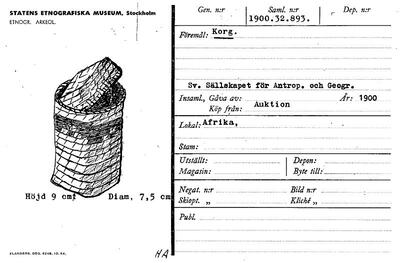 STATENS ETNOGRAFISKA MUSEUM, Stockholm
ETNOGR. ARKEOL.
Höjd 9 cm
Diam. 7,5 cm
HA
Gen. n:r Saml. n:r Dep. n:r
1900.32.893.
Föremål: Korg.
Sv. Sällskapet för Antrop. och Geogr.
Insaml., Gåva av: År: 1900
Köp från: Auktion
Lokal: Afrika,
Stam:
Utställt: Depon:
Magasin: Byte till:
Negat. n:r Bild n:r
Skiopt. „ Kliché „
Publ.